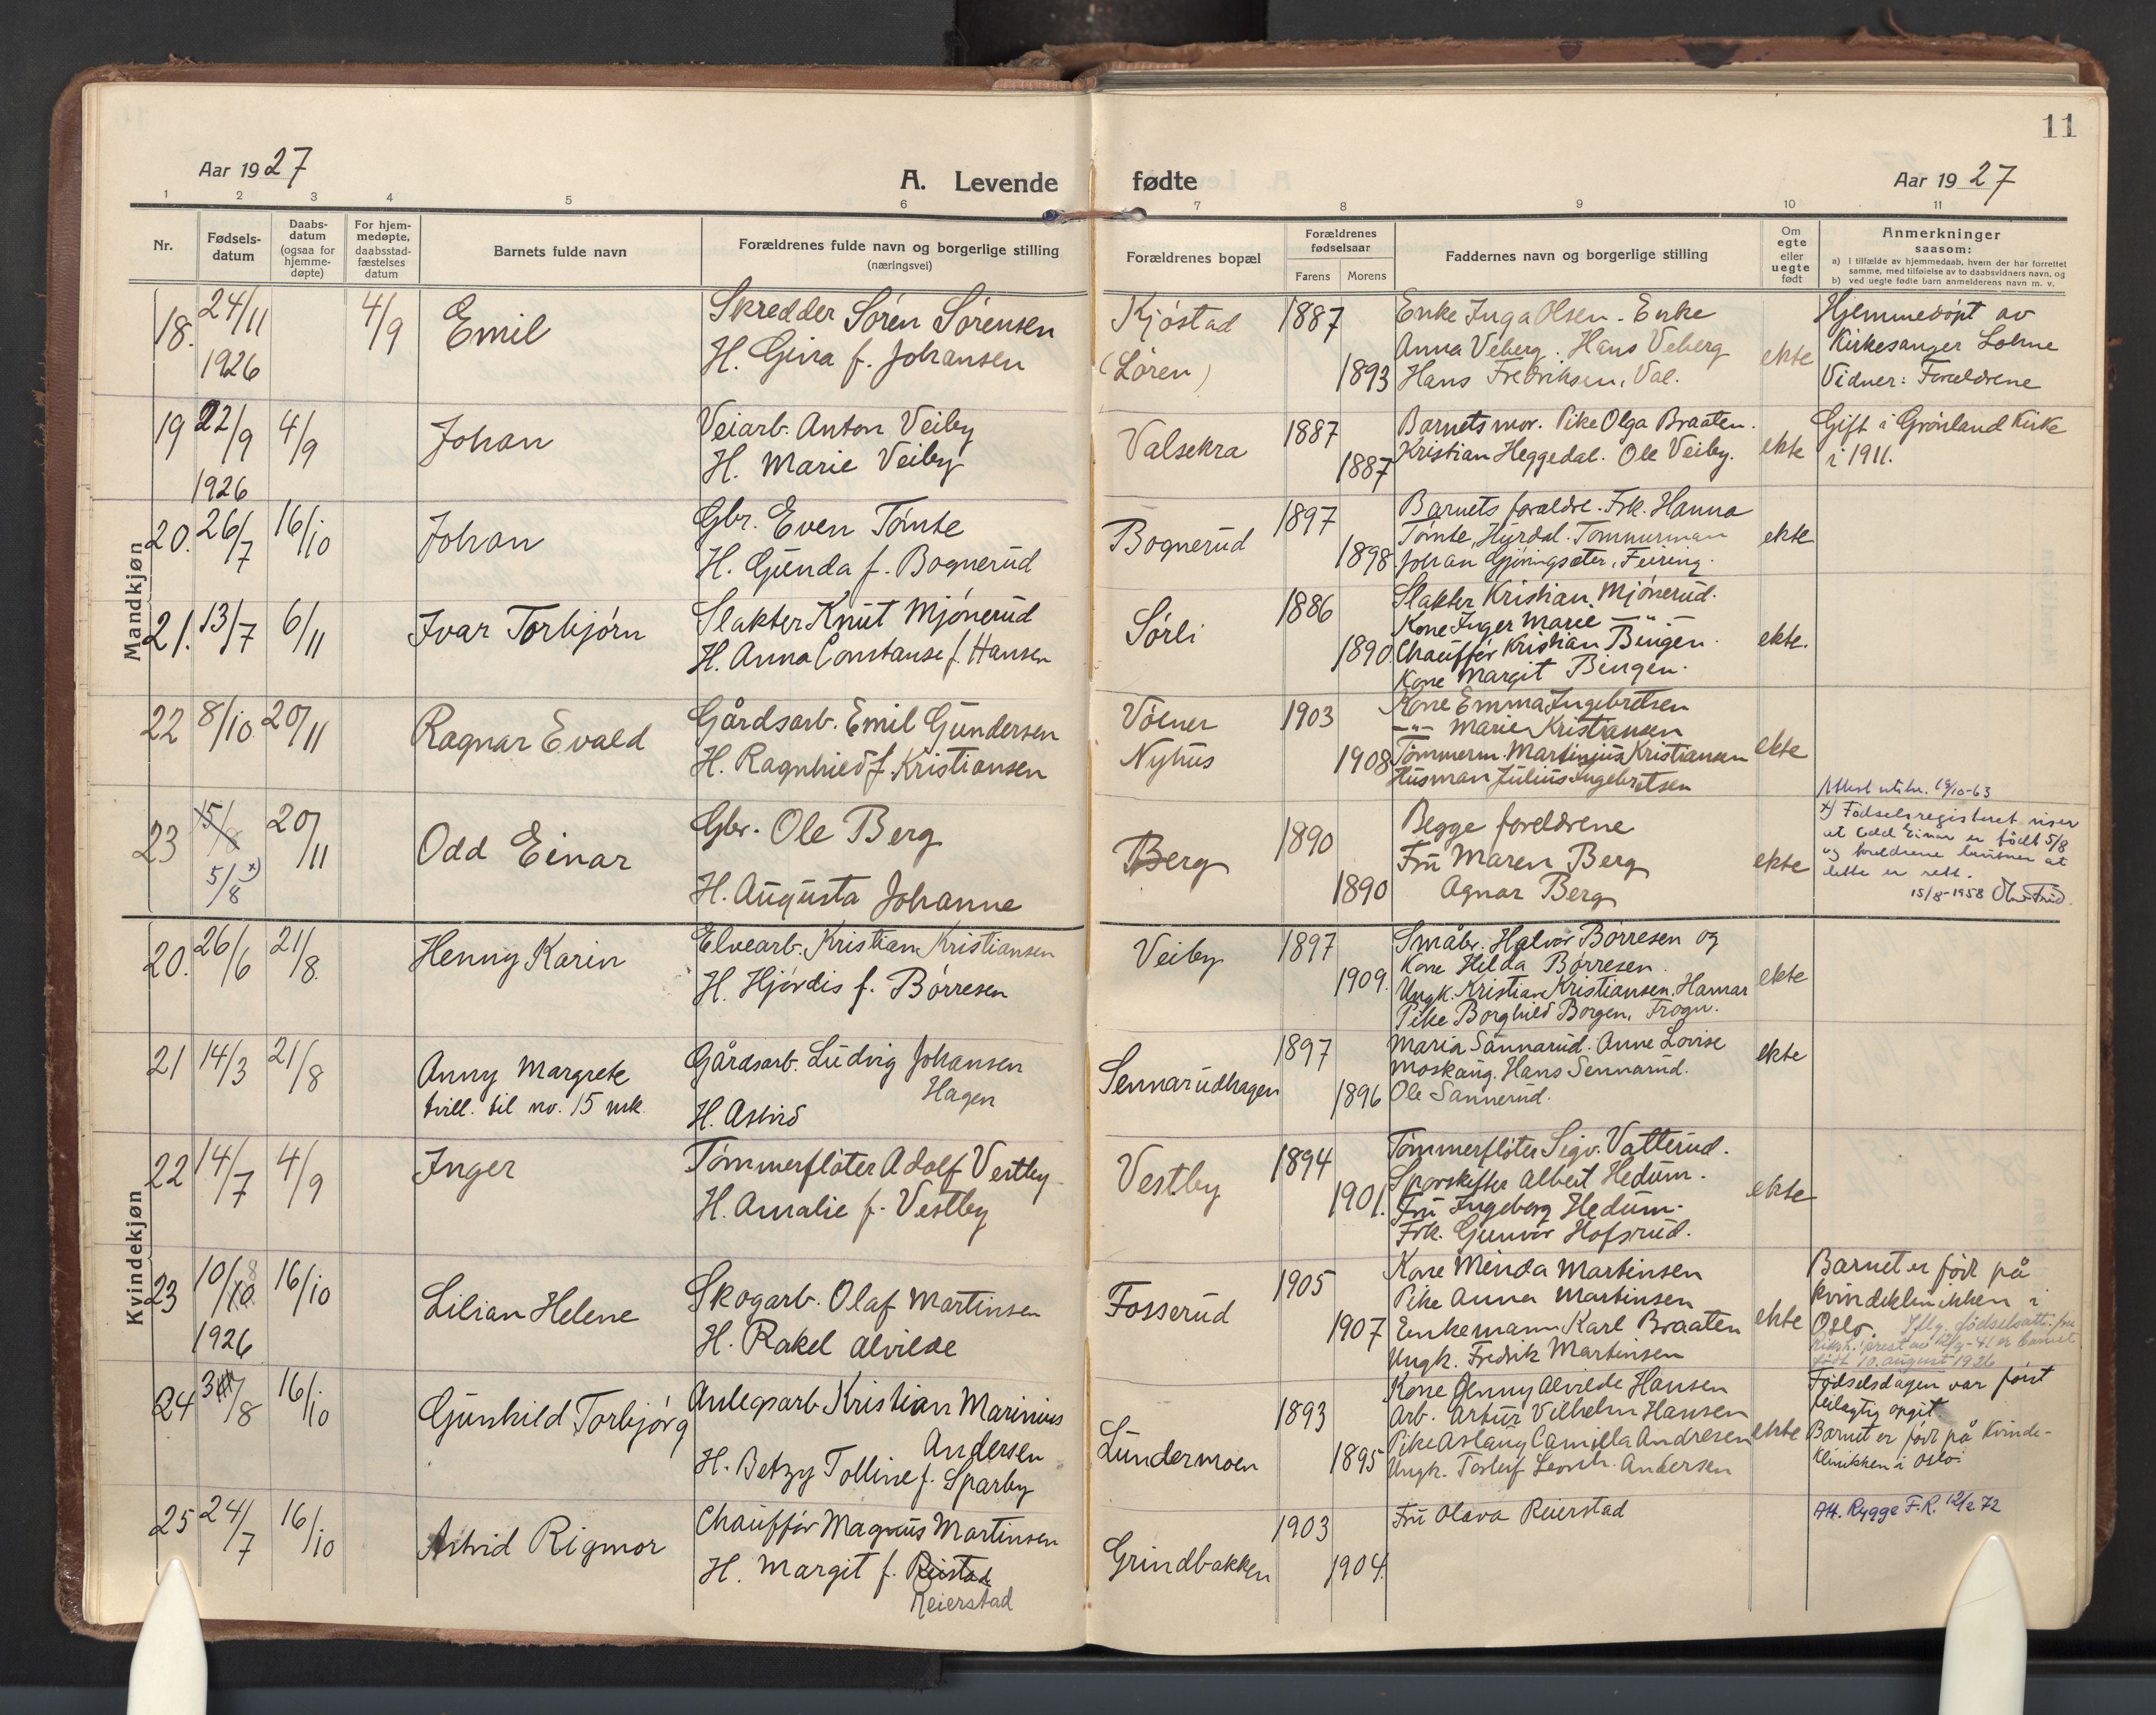 11
Aar 1927
A. Levende fødte
Aar 1927
1 2 3 4 5 6 7 8 9 10 11
Nr.
Fødsels-
datum
Daabs-
datum
(ogsaa for
hjemme-
døpte)
For hjem-
medøpte,
daabsstad-
fæstelses
datum
Barnets fulde navn
Forældrenes fulde navn og borgerlige stilling
(næringsvei)
Forældrenes bopæl
Forældrenes
fødselsaar
Farens Morens
Faddernes navn og borgerlige stilling
Om
egte
eller
uegte
født
Anmerkninger
saasom:
a) I tilfælde av hjemmedaab, hvem der har forrettet
samme, med tilføielse av to daabsvidners navn, og
b) ved uegte fødte barn anmelderens navn m. v.
Mandkjøn
18. 24/11
1926
4/9
Emil
Skredder Søren Sørensen
H. Gina f. Johansen
Kjøstad
(Løren)
1887
1893
Enke Inga Olsen. Enke
Anna Veberg. Hans Veberg
Hans Fredriksen, Val.
ekte
Hjemmedøpt av
Kirkesanger Lohne
Vidner: Forældrene
19 22/9
1926
4/9
Johan
Veiarb. Anton Veiby
H. Marie Veiby
Valsekra
1887
1887
Barnets mor. Pike Olga Braaten.
Kristian Heggedal. Ole Veiby.
ekte
Gift i Grønland Kirke
i 1911.
20. 26/7
16/10
Johan
Gbr. Even Tømte
H. Gunda f. Bognerud
Bognerud
1897
1898
Barnets forældre. Frk. Hanna
Tømte, Hurdal. Tømmerman
Johan Gjøningsæter, Feiring.
ekte
21. 13/7
6/11
Ivar Torbjørn
Slakter Knut Mjønerud
H. Anna Constanse f. Hansen
Sørli
1886
1890
Slakter Kristian Mjønerud.
Kone Inger Marie — " —
Chauffør Kristian Bingen.
Kone Margit Bingen.
ekte.
22 8/10
20/11
Ragnar Evald
Gårdsarb. Emil Gundersen
H. Ragnhild f. Kristiansen
Nyhus
1903
1908
Kone Emma Ingebretsen
—"— Marie Kristiansen
Tømmerm. Martinius Kristiansen
Husman Julius Ingebretsen
ekte
23 15/8
5/8 x)
20/11
Odd Einar
Gbr. Ole Berg
H. Augusta Johanne
Berg
1890
1890
Begge foreldrene
Fru Maren Berg
Agnar Berg
ekte
Attest utst. 19/10-63
x) Fødselsregisteret viser
at Odd Einar er født 5/8
og foreldrene at
dette er rett.
15/8-1958
Kvindekjøn
20. 26/6
21/8.
Henny Karin
Elvearb. Kristian Kristiansen
H. Hjørdis f. Børresen
Veiby
1897
1909.
Småbr. Halvor Børresen og
Kone Hilda Børresen.
Ungk. Kristian Kristiansen, Hamar
Pike Borghild Borgen, Frogn.
ekte
21 14/3
21/8
Anny Margrete
tvill. til no. 15 mk.
Gårdsarb. Ludvig Johansen
Hagen
H. Astrid
Sennarudhagen
1897
1896
Maria Sannarud. Anne Lovise
Moskaug. Hans Sennarud.
Ole Sannerud.
ekte
22 14/7
4/9
Inger
Tømmerfløter Adolf Vestby
H. Amalie f. Vestby
Vestby
1894
1901.
Tømmerfløter Sigv. Vatterud.
Sporskifter Albert Hedum.
Fru Ingeborg Hedum.
Frk. Gunvor Hofsrud.
ekte
23 10/10 8
1926
16/10
Lilian Helene
Skogarb. Olaf Martinsen
H. Rakel Alvilde
Fosserud
1905
1907
Kone Minda Martinsen
Pike Anna Martinsen
Enkemann Karl Braaten
Ungk. Fredrik Martinsen
ekte
Barnet er født på
kvindeklinikken i
Oslo. Iflg. fødselsatt. fra
Riksh. prest av 12/9-41 er barnet
født 10. august 1926
24 3/8
16/10
Gunhild Torbjørg
Anlegsarb. Kristian Marinius
Andersen
H. Betzy Tolline f. Sparby
Lundermoen
1893
1895
Kone Jenny Alvilde Hansen
Arb. Artur Vilhelm Hansen
Pike Aslaug Camilla Andresen
Ungk. Torleif Leonh. Andersen
ekte
Fødselsdagen var først
feilagtig opgit
Barnet er født på Kvinde-
klinikken i Oslo.
25 24/7
16/10
Astrid Rigmor
Chauffør Magnus Martinsen
H. Margit f. Reistad
Reierstad
Grindbakken
1903
1904.
Fru Olava Reierstad
Att. Rygge F.R. 12/2 72